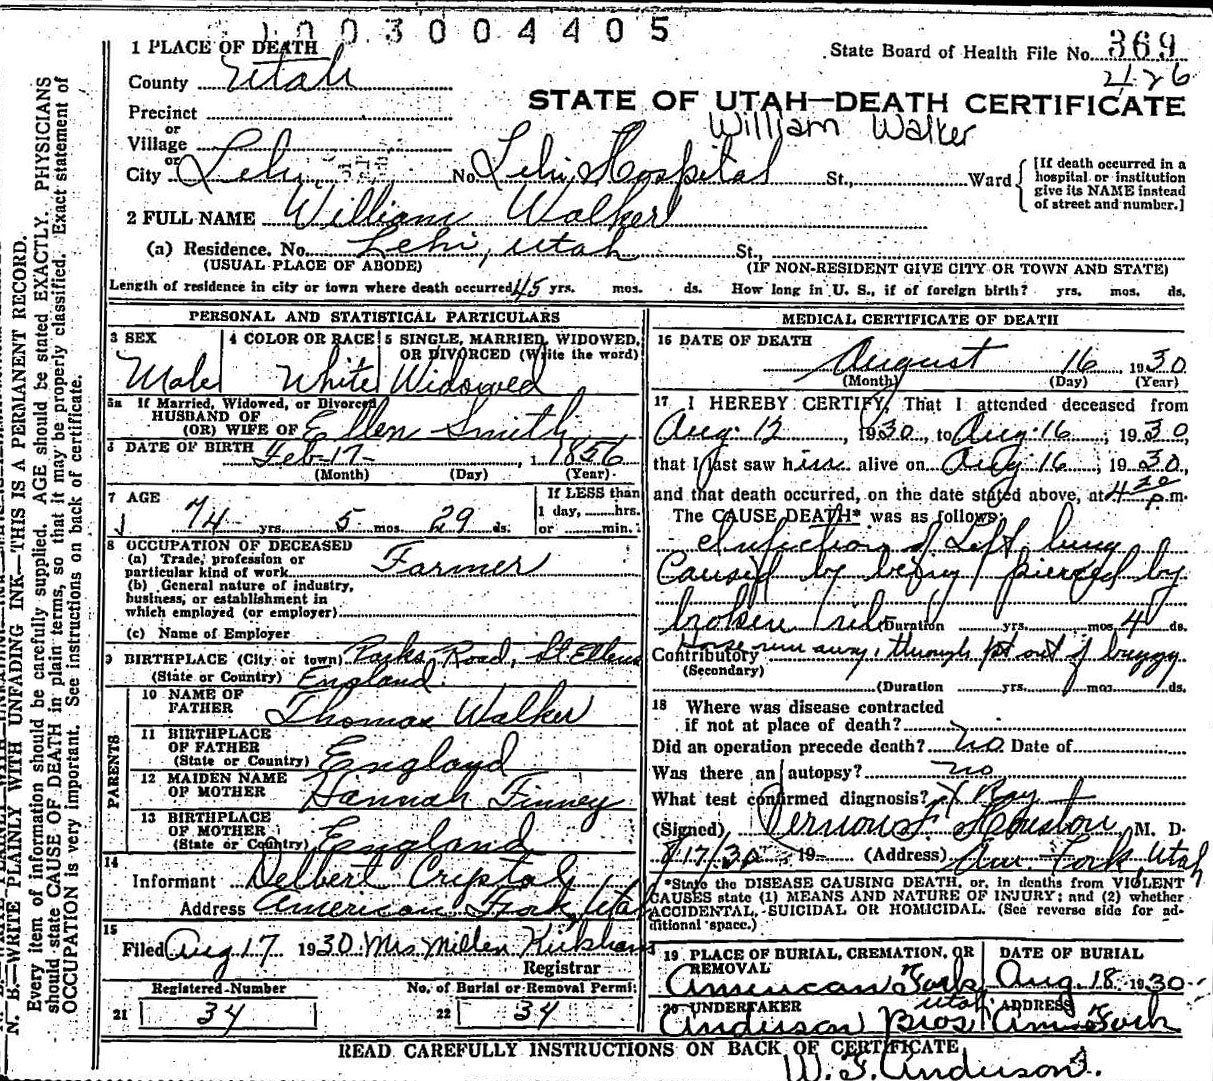 1003004405
1 PLACE OF DEATH
State Board of Health File No. 369
County Utah
426
STATE OF UTAH—DEATH CERTIFICATE
Precinct
William Walker
or
Village
or
City Lehi No. Lehi Hospital St., Ward
[If death occurred in a
hospital or institution
give its NAME instead
of street and number.]
2 FULL NAME William Walker
(a) Residence. No. Lehi, Utah St.,
(USUAL PLACE OF ABODE) (IF NON-RESIDENT GIVE CITY OR TOWN AND STATE)
Length of residence in city or town where death occurred 45 yrs. mos. ds. How long in U. S., if of foreign birth? yrs. mos. ds.
PERSONAL AND STATISTICAL PARTICULARS
3 SEX 4 COLOR OR RACE 5 SINGLE, MARRIED, WIDOWED,
OR DIVORCED (Write the word)
Male White Widowed
5a If Married, Widowed, or Divorced
HUSBAND OF
(OR) WIFE OF Ellen Smith
6 DATE OF BIRTH Feb-17- 1856
(Month) (Day) (Year)
7 AGE If LESS than
1 day, hrs.
74 yrs. 5 mos. 29 ds. or min.
8 OCCUPATION OF DECEASED
(a) Trade, profession or
particular kind of work Farmer
(b) General nature of industry,
business, or establishment in
which employed (or employer)
(c) Name of Employer
9 BIRTHPLACE (City or town) Parks Road, St Ellens
(State or Country) England
PARENTS
10 NAME OF
FATHER Thomas Walker
11 BIRTHPLACE
OF FATHER
(State or Country) England
12 MAIDEN NAME
OF MOTHER Hannah Finney
13 BIRTHPLACE
OF MOTHER
(State or Country) England
14
Informant Delbert
Address American Fork, Utah
15
Filed Aug 17 1930 Mrs Millen Kirkham
Registrar
Registered Number No. of Burial or Removal Permit
21 34 22 34
MEDICAL CERTIFICATE OF DEATH
16 DATE OF DEATH
August 16 1930
(Month) (Day) (Year)
17 I HEREBY CERTIFY, That I attended deceased from
Aug. 12, 1930, to Aug. 16, 1930,
that I last saw him alive on Aug 16, 1930,
and that death occurred, on the date stated above, at 4 30 p.m.
The CAUSE DEATH* was as follows:
Infection of Left lung
Caused by being pierced by
broken rib Duration yrs. mos. 4 ds.
Contributory Horse run away, through pt out of buggy
(Secondary)
(Duration yrs. mos. ds.
18 Where was disease contracted
if not at place of death?
Did an operation precede death? no Date of
Was there an autopsy? no
What test confirmed diagnosis? X Ray
(Signed) Houston, M. D.
8/17/30 19 (Address) Am. Fork, Utah
*State the DISEASE CAUSING DEATH, or, in deaths from VIOLENT
CAUSES state (1) MEANS AND NATURE OF INJURY; and (2) whether
ACCIDENTAL, SUICIDAL OR HOMICIDAL. (See reverse side for ad-
ditional space.)
19 PLACE OF BURIAL, CREMATION, OR
REMOVAL
American Fork Utah
DATE OF BURIAL
Aug. 18 1930
20 UNDERTAKER ADDRESS
Anderson Bros Am. Fork
READ CAREFULLY INSTRUCTIONS ON BACK OF CERTIFICATE
W. F. Anderson.
N. B.—WRITE PLAINLY WITH UNFADING INK—THIS IS A PERMANENT RECORD.
Every item of information should be carefully supplied. AGE should be stated EXACTLY. PHYSICIANS
should state CAUSE OF DEATH in plain terms, so that it may be properly classified. Exact statement of
OCCUPATION is very important. See instructions on back of certificate.